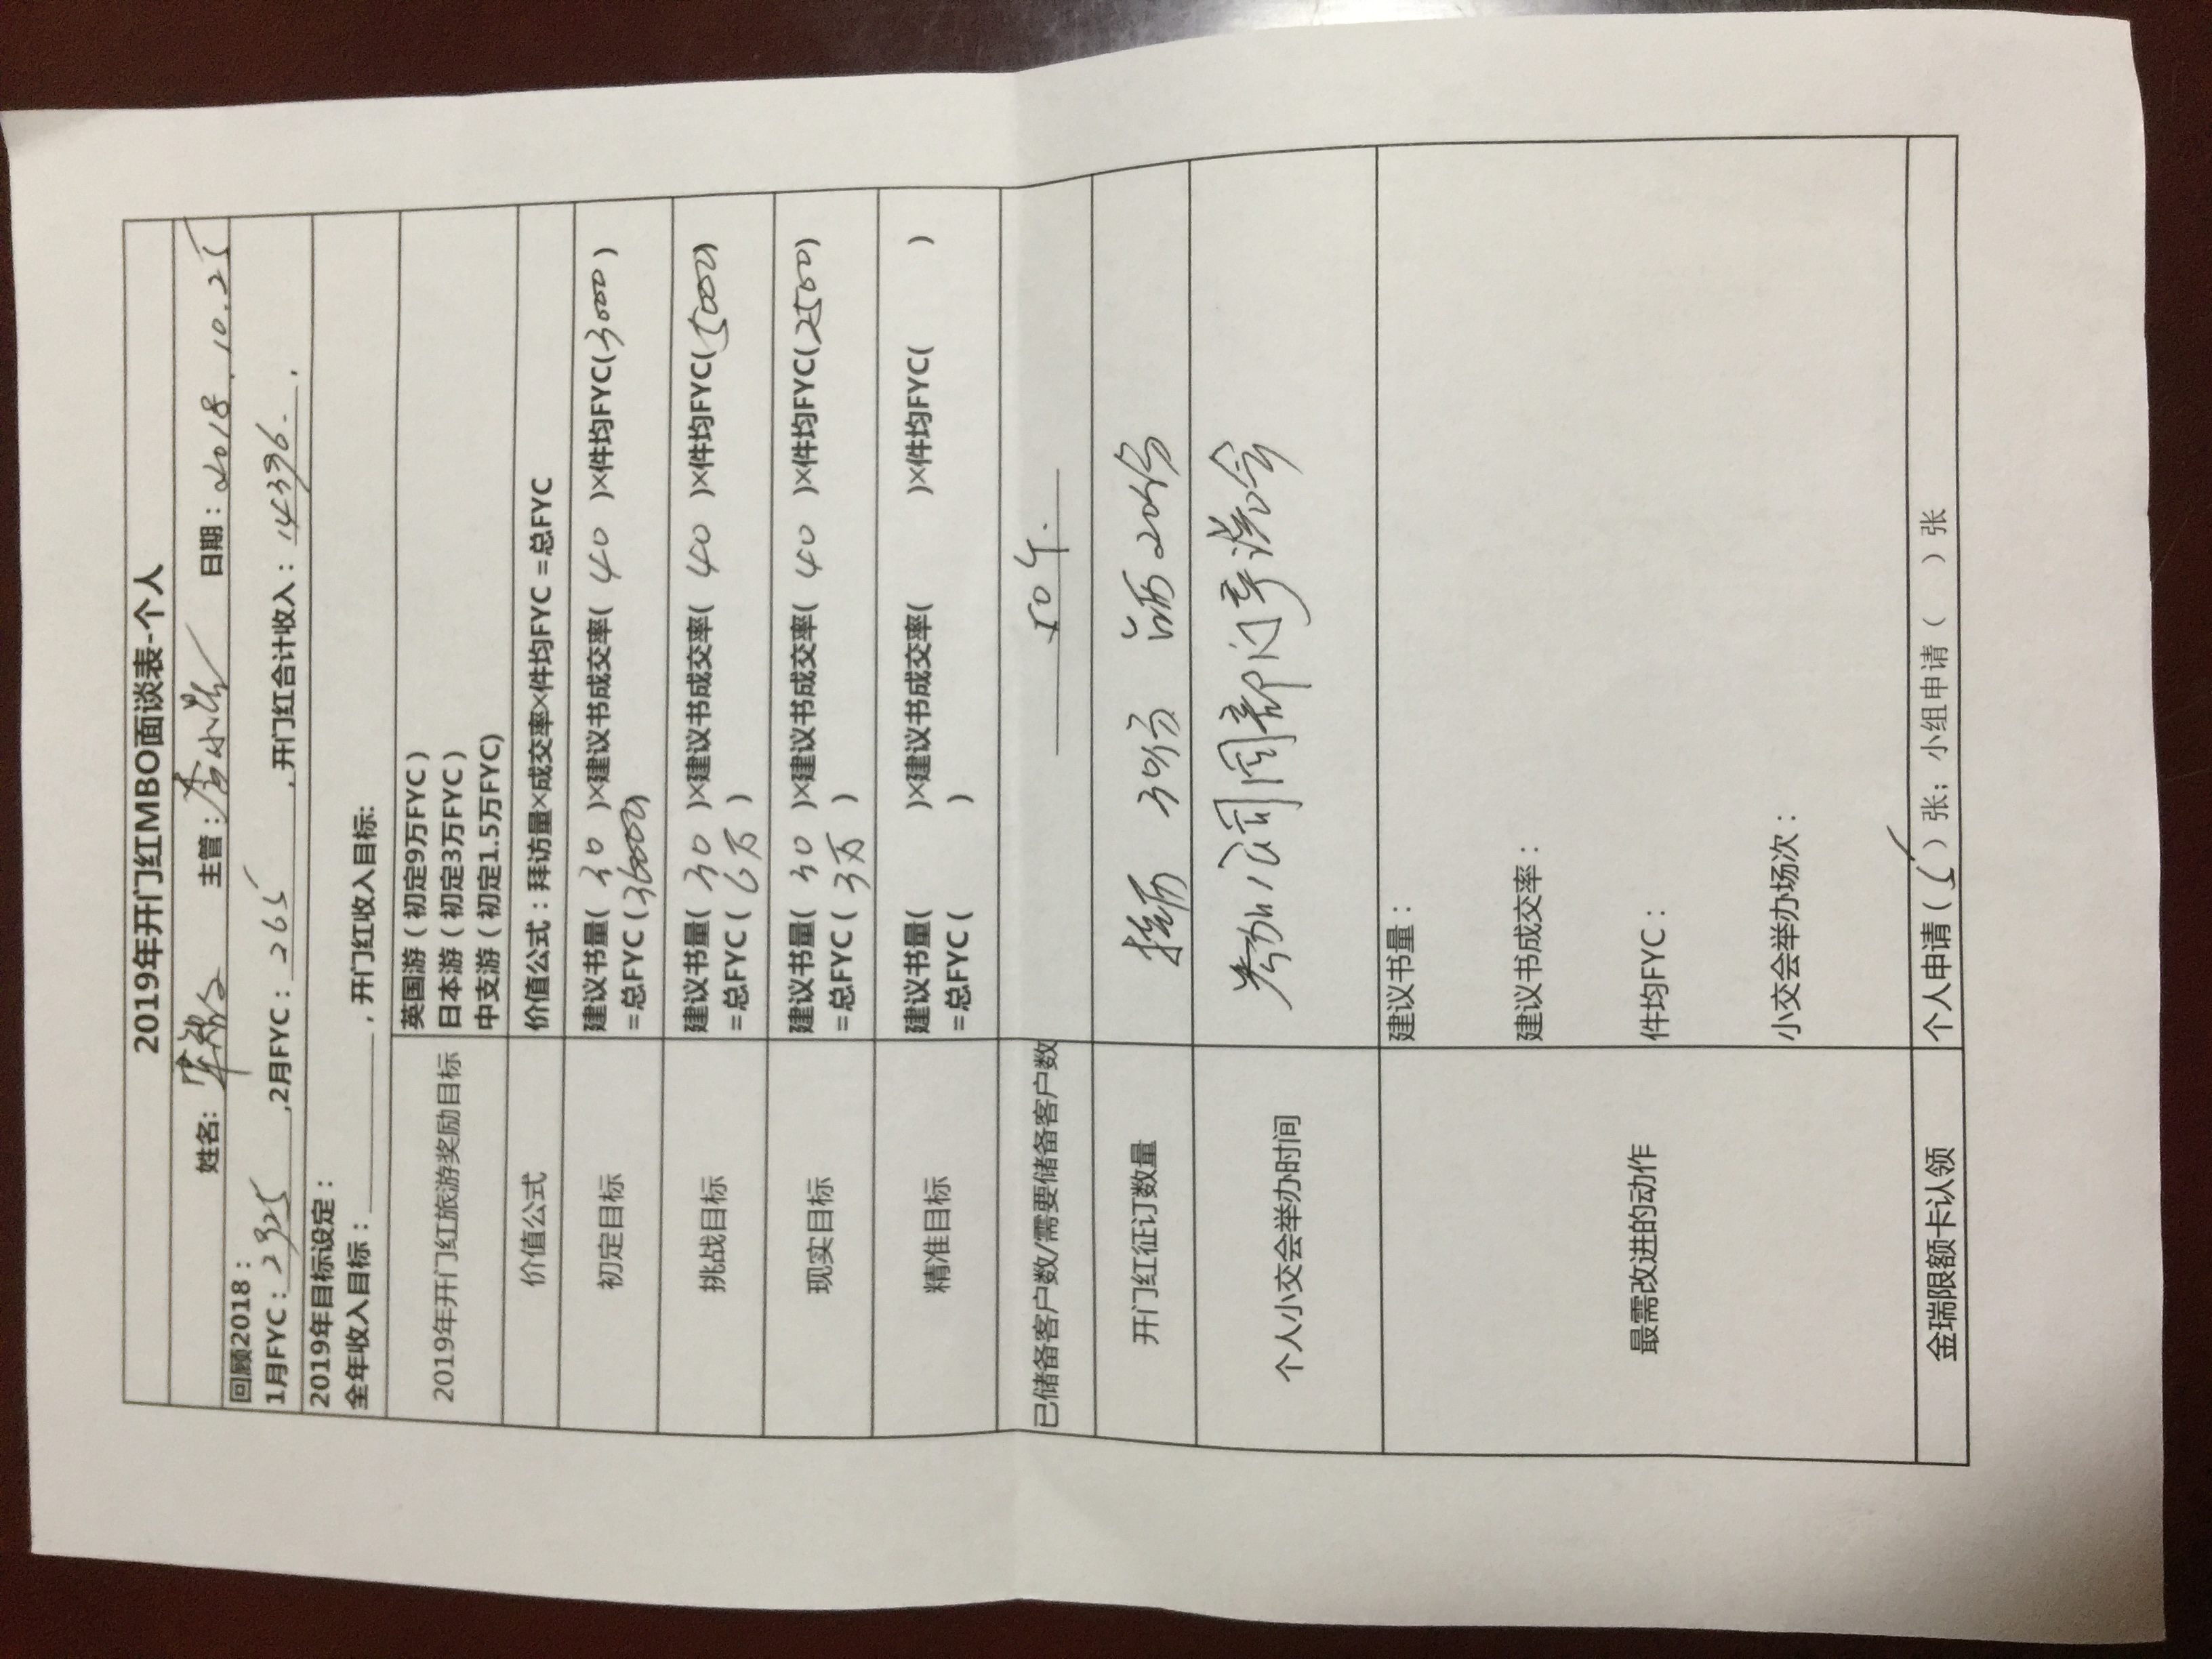 2019年开门红MBO面谈表-个人
姓名: 主管: 李小 日期:2018.10.25
回顾2018:
1月FYC:2325,2月FYC:265,开门红合计收入:14396.
2019年目标设定:
全年收入目标:,开门红收入目标:
2019年开门红旅游奖励目标
英国游(初定9万FYC)
日本游(初定3万FYC)
中支游(初定1.5万FYC)
价值公式
价值公式:拜访量×成交率×件均FYC=总FYC
初定目标
建议书量(30)×建议书成交率(40)×件均FYC(3000)
=总FYC(36000)
挑战目标
建议书量(30)×建议书成交率(40)×件均FYC(5000)
=总FYC(6万)
现实目标
建议书量(30)×建议书成交率(40)×件均FYC(2500)
=总FYC(3万)
精准目标
建议书量( )×建议书成交率( )×件均FYC( )
=总FYC( )
已储备客户数/需要储备客户数
50个.
开门红征订数量
30份 20份
个人小交会举办时间
参加公司周新闪亭
最需改进的动作
建议书量:
建议书成交率:
件均FYC:
小交会举办场次:
金瑞限额卡认领
个人申请(5)张;小组申请( )张